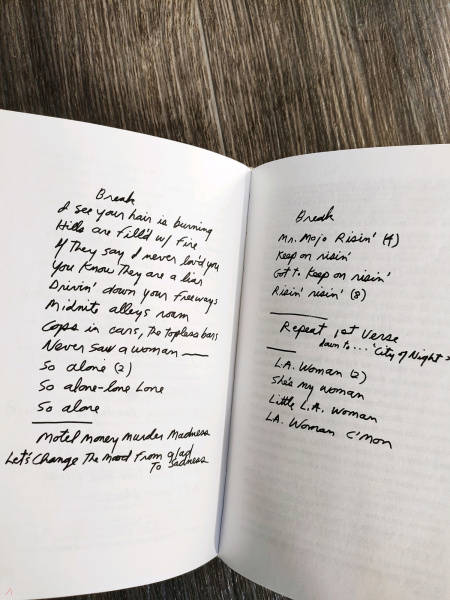 Break
I see your hair is burning
Hills are fill'd w/ Fire
If They say I never lov'd you
You Know They are a liar
Drivin' down your freeways
Midnite alleys roam
Cops in cars, The Topless bars
Never saw a woman —
So alone (2)
So alone-lone Lone
So alone
Motel Money Murder Madness
Let's Change The Mood From glad
To Sadness
Break
Mr. Mojo Risin' (4)
Keep on risin'
Got to Keep on risin'
Risin' risin' (8)
Repeat 1st Verse
down to... "City of Night"
L.A. Woman (2)
She's my woman
Little L.A. Woman
L.A. Woman C'mon